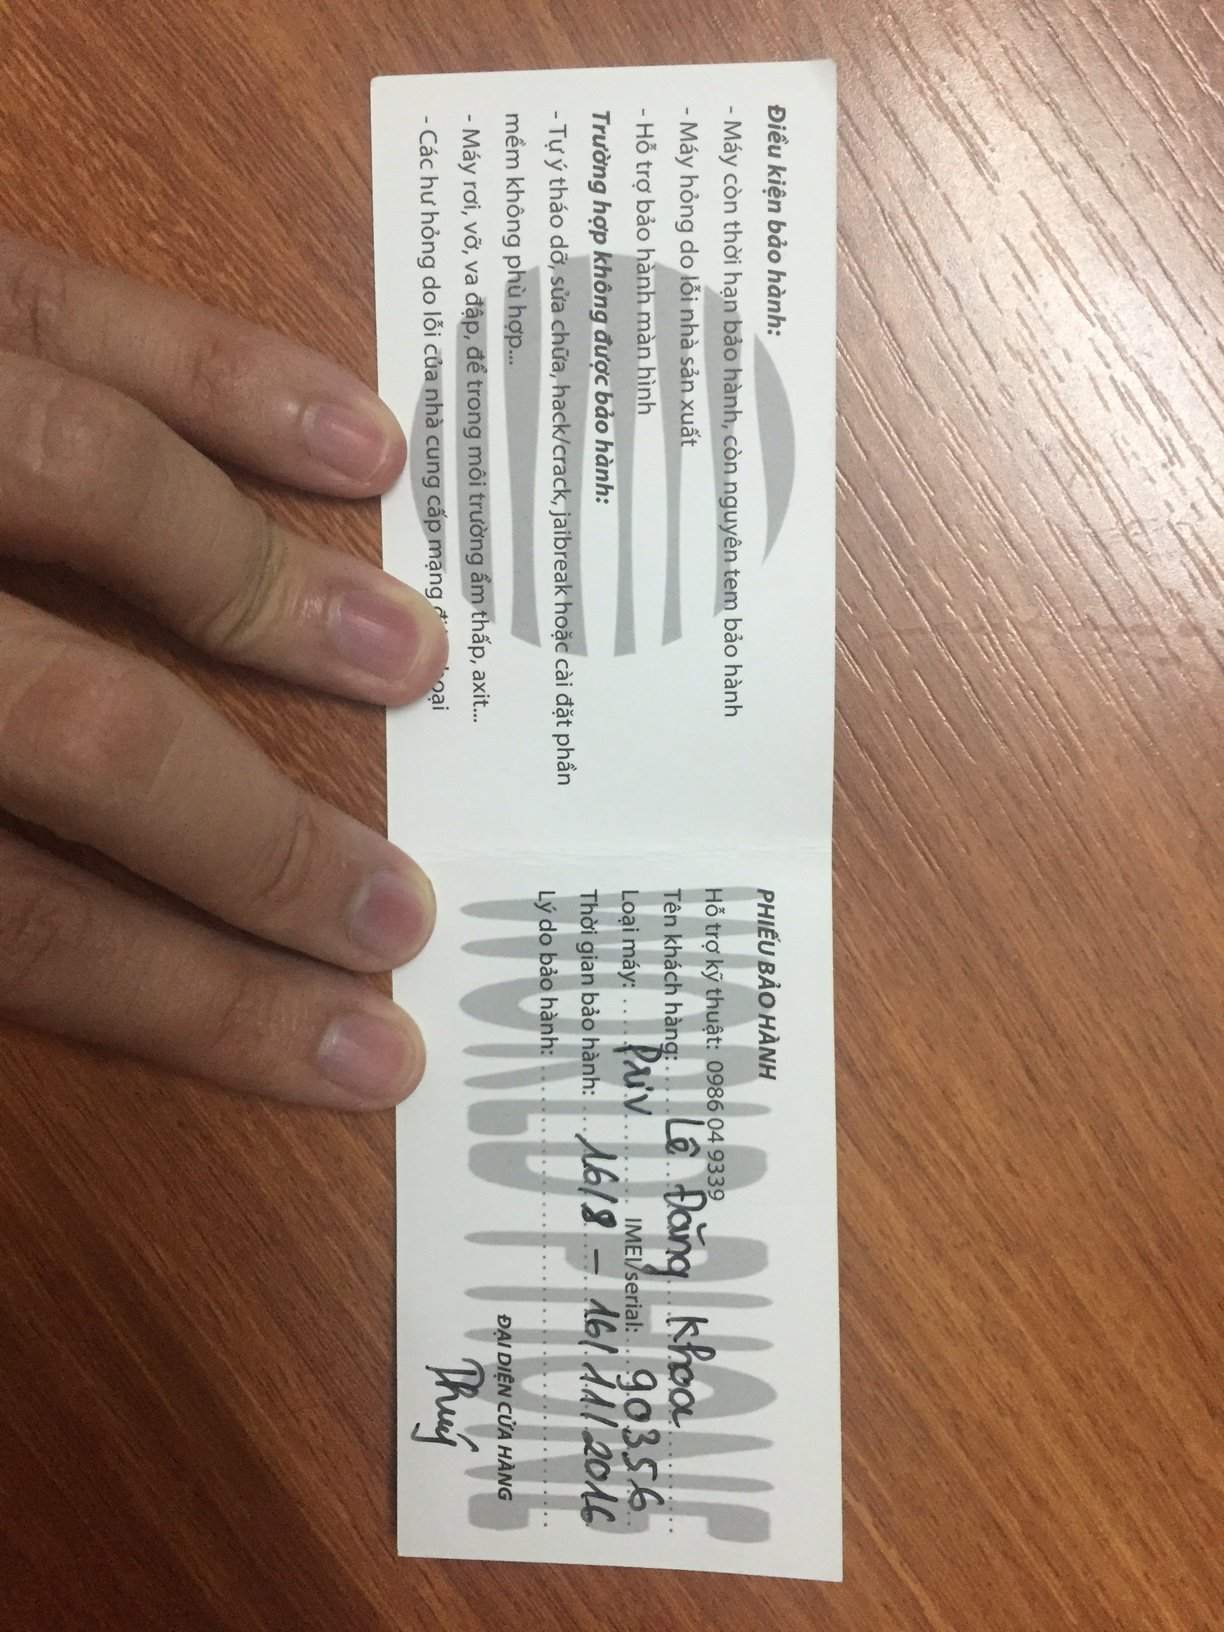 Điều kiện bảo hành:
- Máy còn thời hạn bảo hành, còn nguyên tem bảo hành
- Máy hỏng do lỗi nhà sản xuất
- Hỗ trợ bảo hành màn hình
Trường hợp không được bảo hành:
- Tự ý tháo dỡ, sửa chữa, hack/crack, jaibreak hoặc cài đặt phần
mềm không phù hợp...
- Máy rơi, vỡ, va đập, để trong môi trường ẩm thấp, axit...
- Các hư hỏng do lỗi của nhà cung cấp mạng
PHIẾU BẢO HÀNH
Hỗ trợ kỹ thuật: 0986 04 9339
Tên khách hàng: Lê Đăng Khoa
Loại máy: Priv IMEI/serial: 90356
Thời gian bảo hành: 16/8 – 16/11/2016
Lý do bảo hành:
ĐẠI DIỆN CỬA HÀNG
Thuý